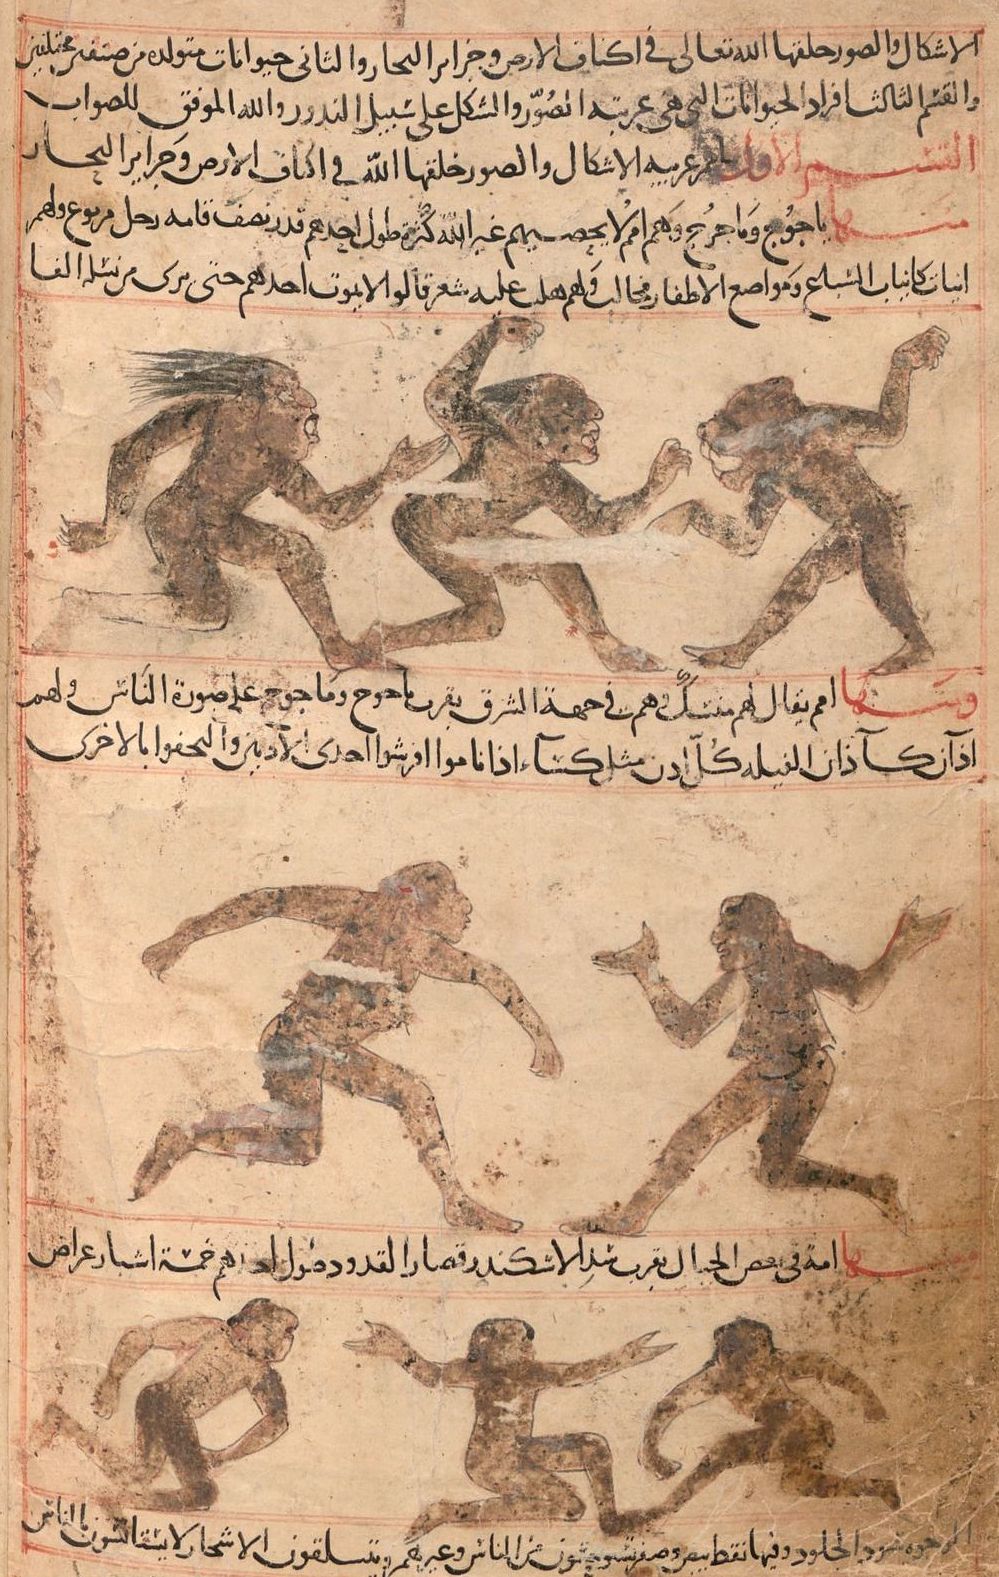 الاشكال والصور خلقها الله تعالى في اكناف الارض وجزاير البحار والثانى حيوانات متولده من صنفين مختلفين
والقسم الثالث افراد الحيوانات التي هي غريبة الصور والشكل على سبيل الندور والله الموفق للصواب
القسم الاول امم غريبه الاشكال والصور خلقها الله في اكناف الارض وجزاير البحار
منها ياجوج وماجوج وهم امم لا يحصيهم غير الله كثرة طول احدهم قدر نصف قامه رجل مربوع ولهم
انياب كانياب السباع ومواضع الاظفار مخالب ولهم هلب عليه شعر قالوا لا يموت احدهم حتى يرى من نسله الفا
ومنها امم يقال لهم منسك وهم في جهة الشرق بقرب ياجوج وماجوج على صورة الناس ولهم
اذان كآذان الفيله كل اذن مثل كساء اذا ناموا افرشوا احدى الآذنين والتحفوا بالاخرى
ومنها امة في بعض الجبال بقرب سد الاسكندر قصار القدود طول احدهم خمسة اشبار عراض
الوجوه سود الجلود وفيها نقط بيض وصفر من الناس وغيرهم ويتسلقون الاشجار لا يستانسون بالناس